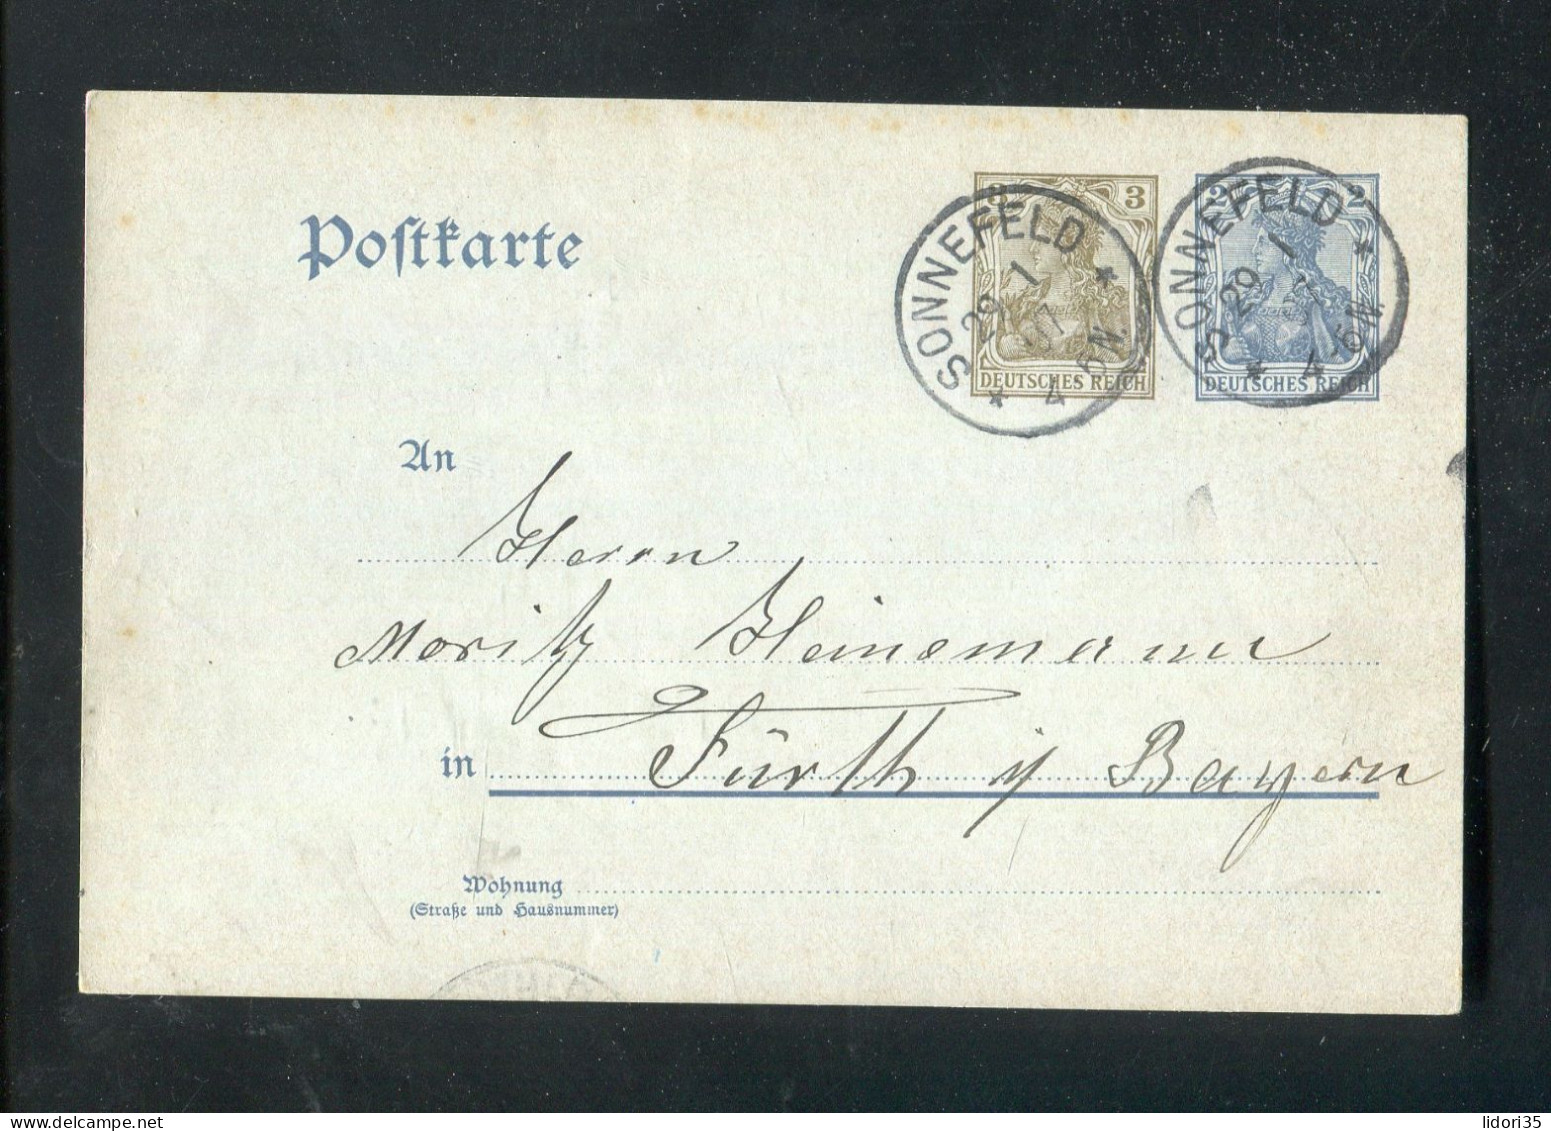 Postkarte
3 3
DEUTSCHES REICH
2 2
DEUTSCHES REICH
SONNEFELD
29 1
07
4-6N.
SONNEFELD
29 1
4-6N.
An
Herrn
Moritz Heinemann
in Fürth i/ Bayern
Wohnung
(Straße und Hausnummer)
lidori35